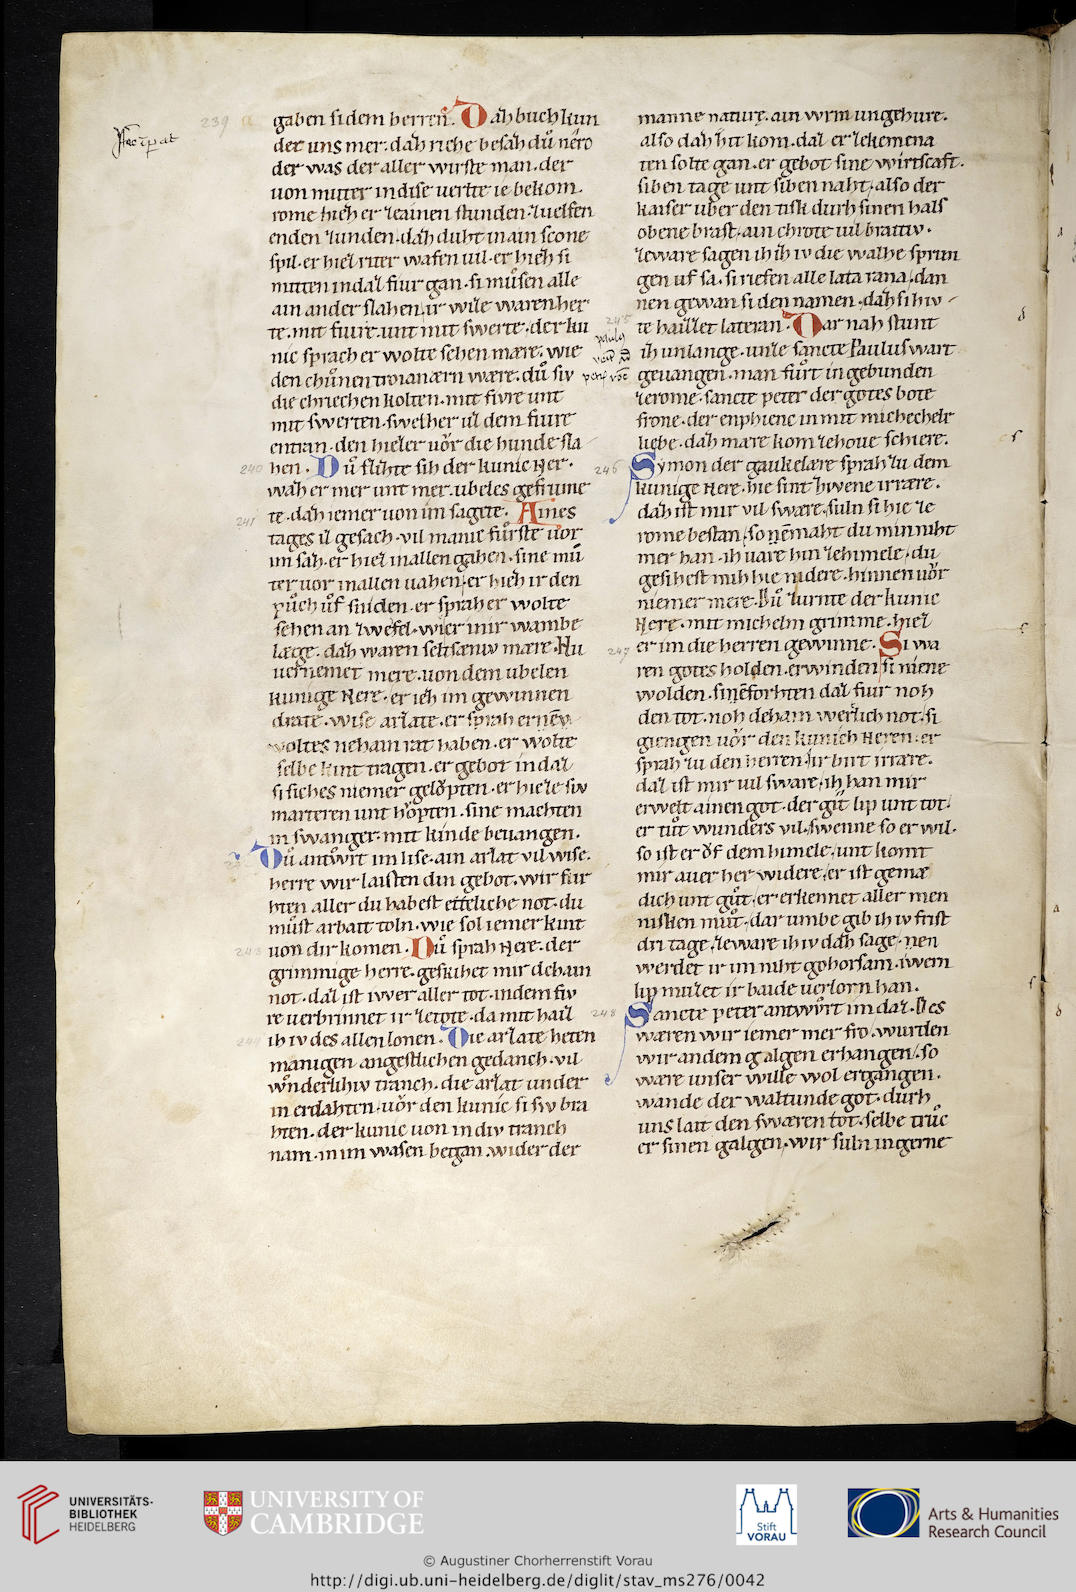 239
gaben si dem herren. Daz buch kun
det uns mer. daz riche besaz dů nero
der was der aller wirste man. der
uon mutter in dise uerlte ie bekom.
rome hiez er zeainen stunden. zuelfen
enden zunden. daz duht in ain scone
spil. er hiez riter wafen uil. er hiez si
mitten in daz fiur gan. si můsen alle
ain ander slahen. ir wize waren her
te. mit fiure. unt mit swerte. der ku
nic sprach er wolte sehen mære. wie
den chůnen troianærn wære. dů siv
die chriechen kolten. mit fivre unt
mit swerten. swelher uz dem fiure
entran. den hiezer uůr die hunde sla
240
hen. Dů slihte sih der kunic Ner.
waz er mer unt mer. ubeles gefrume
241
te. daz iemer uon im sagete. Aines
tages iz gesach. vil manic fůrste uor
im saz. er hiez in allen gahen. sine mů
ter uor in allen uahen. er hiez ir den
půch ůf sniden. er sprah er wolte
sehen an zwefel. wier inir wambe
læge. daz waren seltsæniv mære. Nu
uernemet mere. uon dem ubelen
kunige Nere. er ieh im gewinnen
drate. wise arzate. er sprah er nēv
woltes nehain rat haben. er wolte
selbe kint tragen. er gebot in daz
si siches niemer gelǒpten. er hieze siv
marteren unt hǒpten. sine machten
in swanger. mit kinde beuangen.
Dů antẘrt im lise. ain arzat vil wise.
herre wir laisten din gebot. wir fur
hten aller du habest etteliche not. du
můst arbait toln. wie sol iemer kint
243
uon dir komen. Dů sprah Nere. der
grimmige herre. geskihet mir dehain
not. daz ist iwer aller tot. indem fiv
re uerbrinnet ir zetote. da mit hail
244
ih iv des allen lonen. Die arzate heten
manigen angestlichen gedanch. vil
ẘnderlihiv tranch. die arzat under
in erdahten. uůr den kunic si siv bra
hten. der kunic uon in div tranch
nam. in im wasen began. wider der
manne natiure. ain wrm ungehure.
also daz zit kom. daz er zekemena
ten solte gan. er gebot sine wirtscaft.
siben tage unt siben naht. also der
kaiser uber den tisk durh sinen hals
obene brast. ain chrote uil braitiv.
zeware sagen ih ih iv die walhe sprun
gen uf sa. si riefen alle lata rana. dan
nen gewan si den namen. daz si hiv
245
te haizzet lateran. Dar nah stunt
iz unlange. unze sancte Paulus wart
geuangen. man fůrt in gebunden
zerome. sancte peter der gotes bote
frone. der enphienc in mit michechelr
liebe. daz mære kom zehoue schiere.
246
Symon der gaukelære sprah zu dem
kunige Nere. hie sint zwene irrære.
daz ist mir vil swære. suln si hie ze
rome bestan. so nēmaht du min niht
mer han. ih uare hin zehimele. du
gesihest mih hie nidere. hinnen uůr
niemer mere. Dů zurnte der kunic
Nere. mit micheln grimme. hiez
247
er im die herren gewinne. Si wa
ren gotes holden. erwinden si niene
wolden. sinēforhten daz fiur noh
den tot. noh dehain werlich not. si
giengen uůr den kunich Neren. er
sprah zu den herren. ir birt irrære.
daz ist mir uil sware. ih han mir
erwelt ainen got. der gît lip unt tot.
er tůt wunders vil. swenne so er wil.
so ist er ůf dem himele. unt komt
mir auer her widere. er ist genæ
dich unt gůt. er erkennet aller men
nisken můt. dar umbe gib ih iv frist
dri tage. zeware ih iv daz sage. nen
werdet ir im niht gohorsam. iwern
lip muzet ir baide uerlorn han.
248
Sancte peter antwůrt im daz. Des
wæren wir iemer mer fro. wurden
wir an dem galgen erhangen. so
wære unser wille wol ergangen.
wande der waltunde got. durh
uns lait den swæren tot. selbe trůc
er sinen galgen. wir suln in gerne
UNIVERSITÄTS-
BIBLIOTHEK
HEIDELBERG
UNIVERSITY OF
CAMBRIDGE
Stift
VORAU
Arts & Humanities
Research Council
© Augustiner Chorherrenstift Vorau
http://digi.ub.uni-heidelberg.de/diglit/stav_ms276/0042